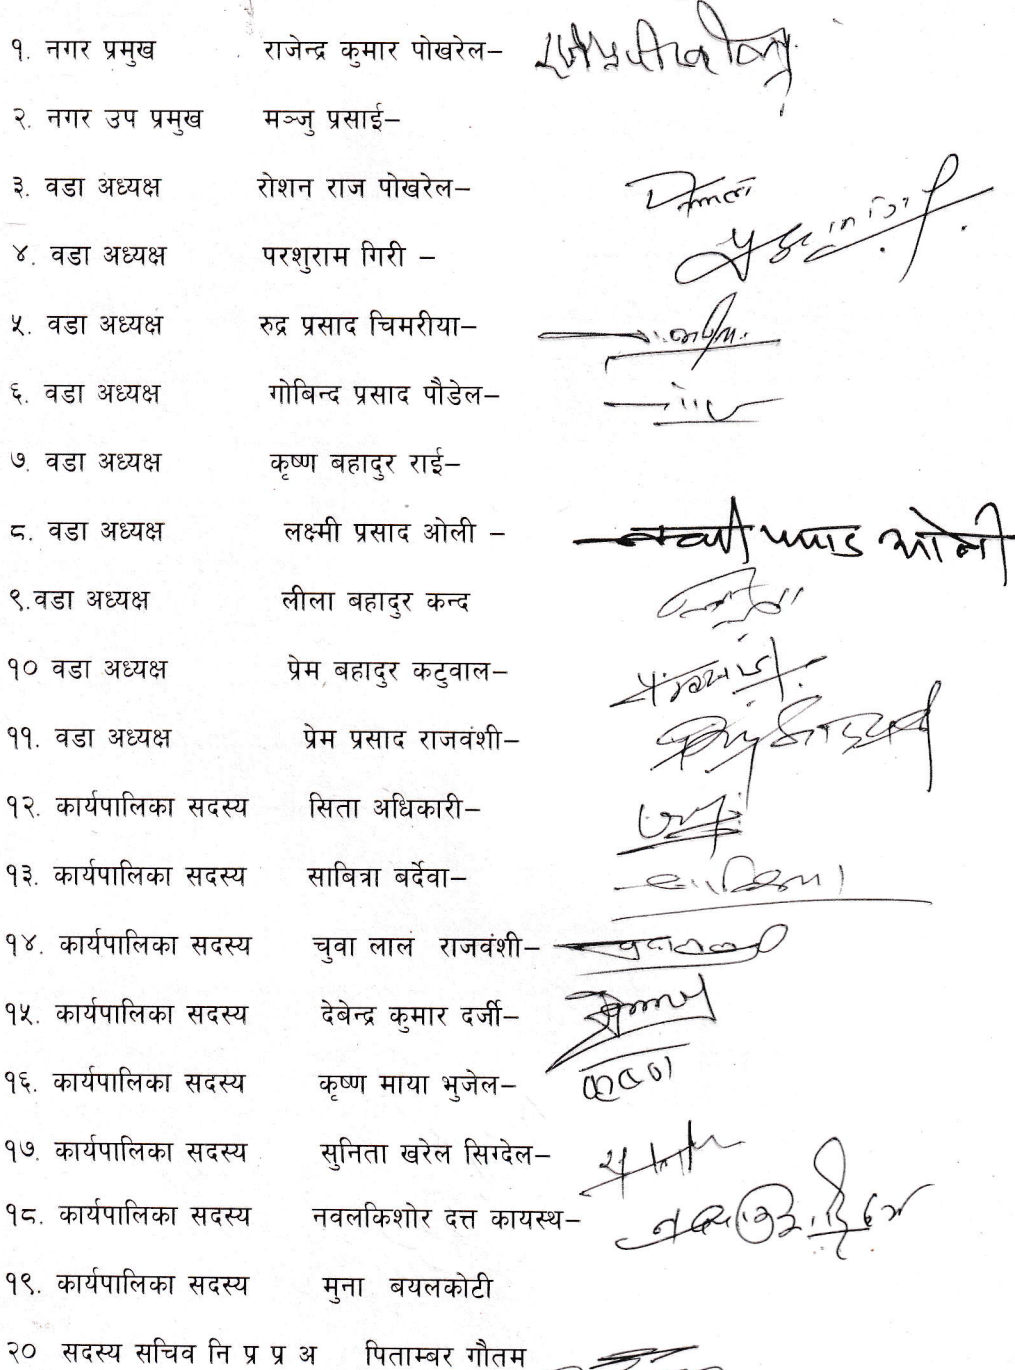 १. नगर प्रमुख राजेन्द्र कुमार पोखरेल–
२. नगर उप प्रमुख मञ्जु प्रसाई–
३. वडा अध्यक्ष रोशन राज पोखरेल–
४. वडा अध्यक्ष परशुराम गिरी –
५. वडा अध्यक्ष रुद्र प्रसाद चिमरीया–
६. वडा अध्यक्ष गोबिन्द प्रसाद पौडेल–
७. वडा अध्यक्ष कृष्ण बहादुर राई–
८. वडा अध्यक्ष लक्ष्मी प्रसाद ओली –
९.वडा अध्यक्ष लीला बहादुर कन्द
१० वडा अध्यक्ष प्रेम बहादुर कटुवाल–
११. वडा अध्यक्ष प्रेम प्रसाद राजवंशी–
१२. कार्यपालिका सदस्य सिता अधिकारी–
१३. कार्यपालिका सदस्य साबित्रा बर्देवा–
१४. कार्यपालिका सदस्य चुवा लाल राजवंशी–
१५. कार्यपालिका सदस्य देबेन्द्र कुमार दर्जी–
१६. कार्यपालिका सदस्य कृष्ण माया भुजेल–
१७. कार्यपालिका सदस्य सुनिता खरेल सिग्देल–
१८. कार्यपालिका सदस्य नवलकिशोर दत्त कायस्थ–
१९. कार्यपालिका सदस्य मुना बयलकोटी
२० सदस्य सचिव नि प्र प्र अ पिताम्बर गौतम